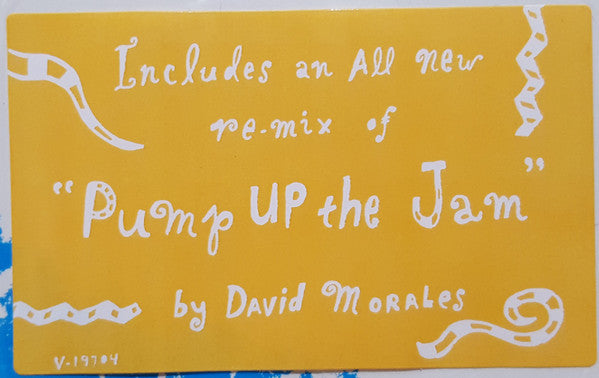 Includes an All new
re-mix of
"Pump UP the Jam"
by David Morales
V-19704